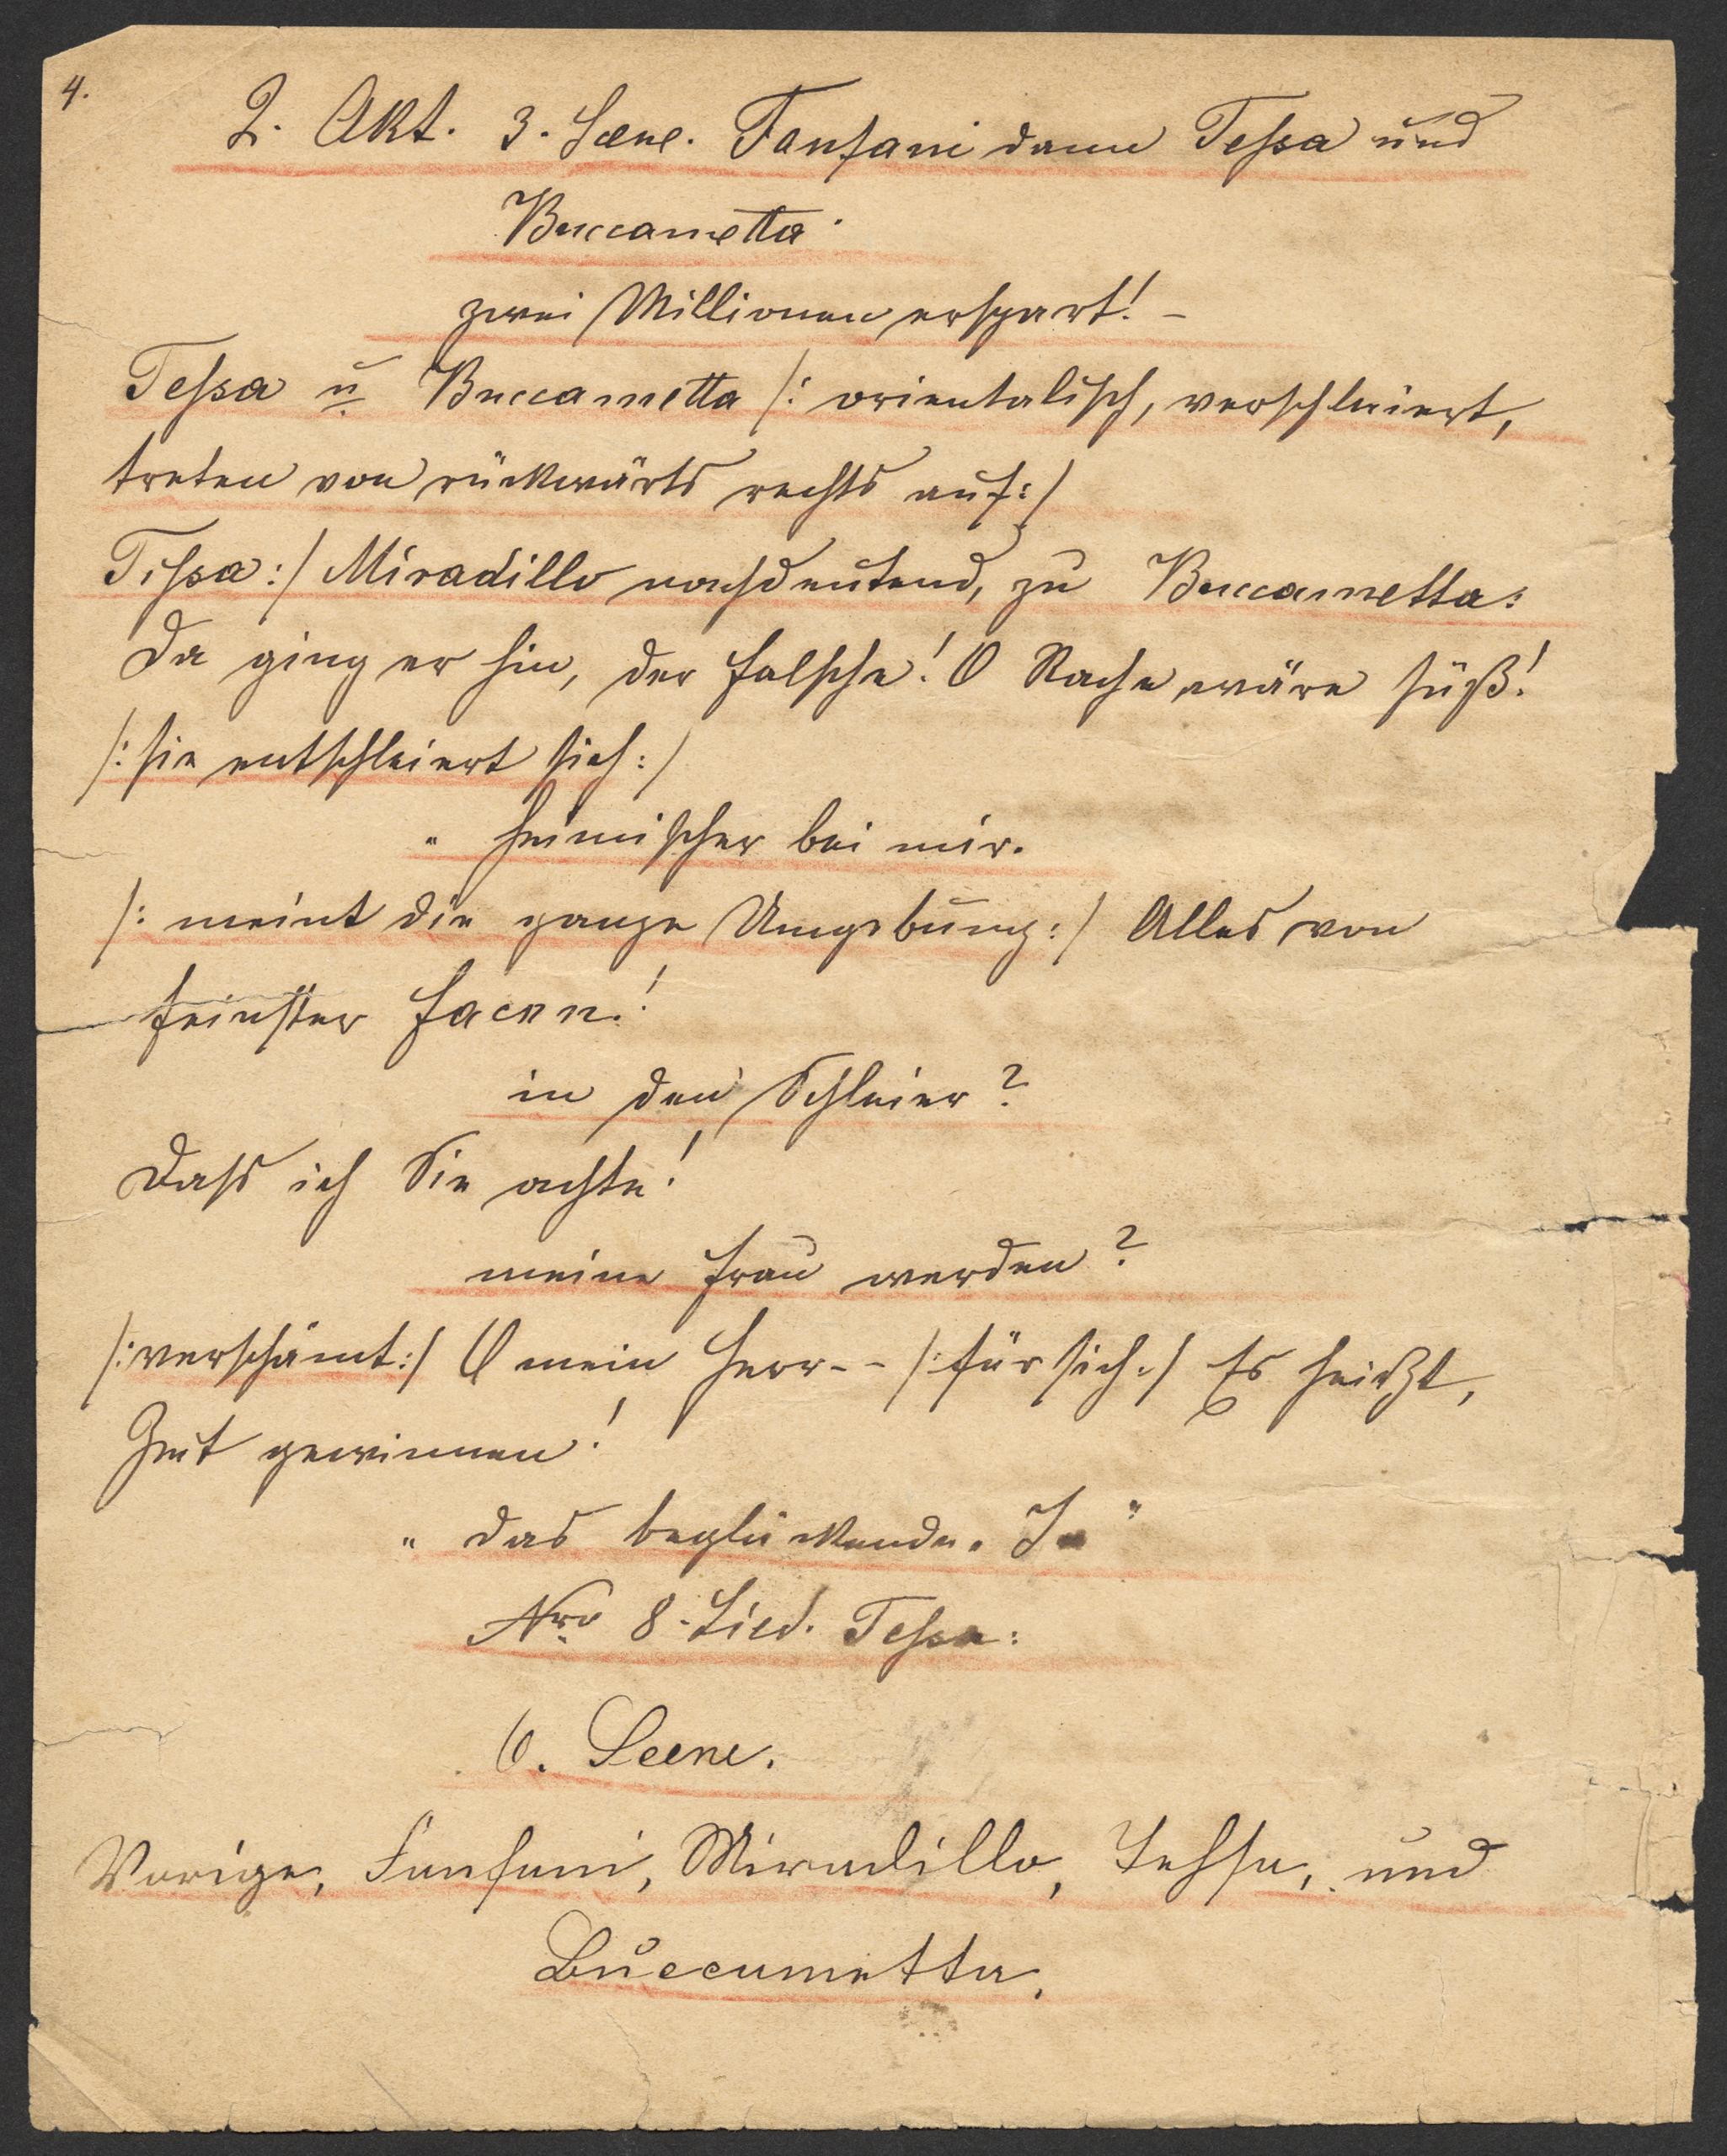 4.
2. Akt. 3. Scene. Fanfani dann Tessa und
Buccametta.
zwei Millionen erspart! -
Tessa u Buccametta /: orientalisch, verschleiert,
treten von rückwärts rechts auf: /
Tessa: / Miradillo nachdeutend, zu Buccametta:
Da ging er hin, der Falsche! O Rache wäre süß!
/: sie entschleiert sich: /
" heimischer bei mir.
/: meint die ganze Umgebung: / Alles von
feinster Facon!
in den Schleier?
Dass ich Sie achte!
meine Frau werden?
/: verschämt: / O mein Herr - - /: für sich: / Es heißt,
Zeit gewinnen!
" das beglückende „ Ja "
Nro 8. Lied. Tessa:
6. Scene.
Vorige, Fanfani, Miradillo, Tessa, und
Buccametta.